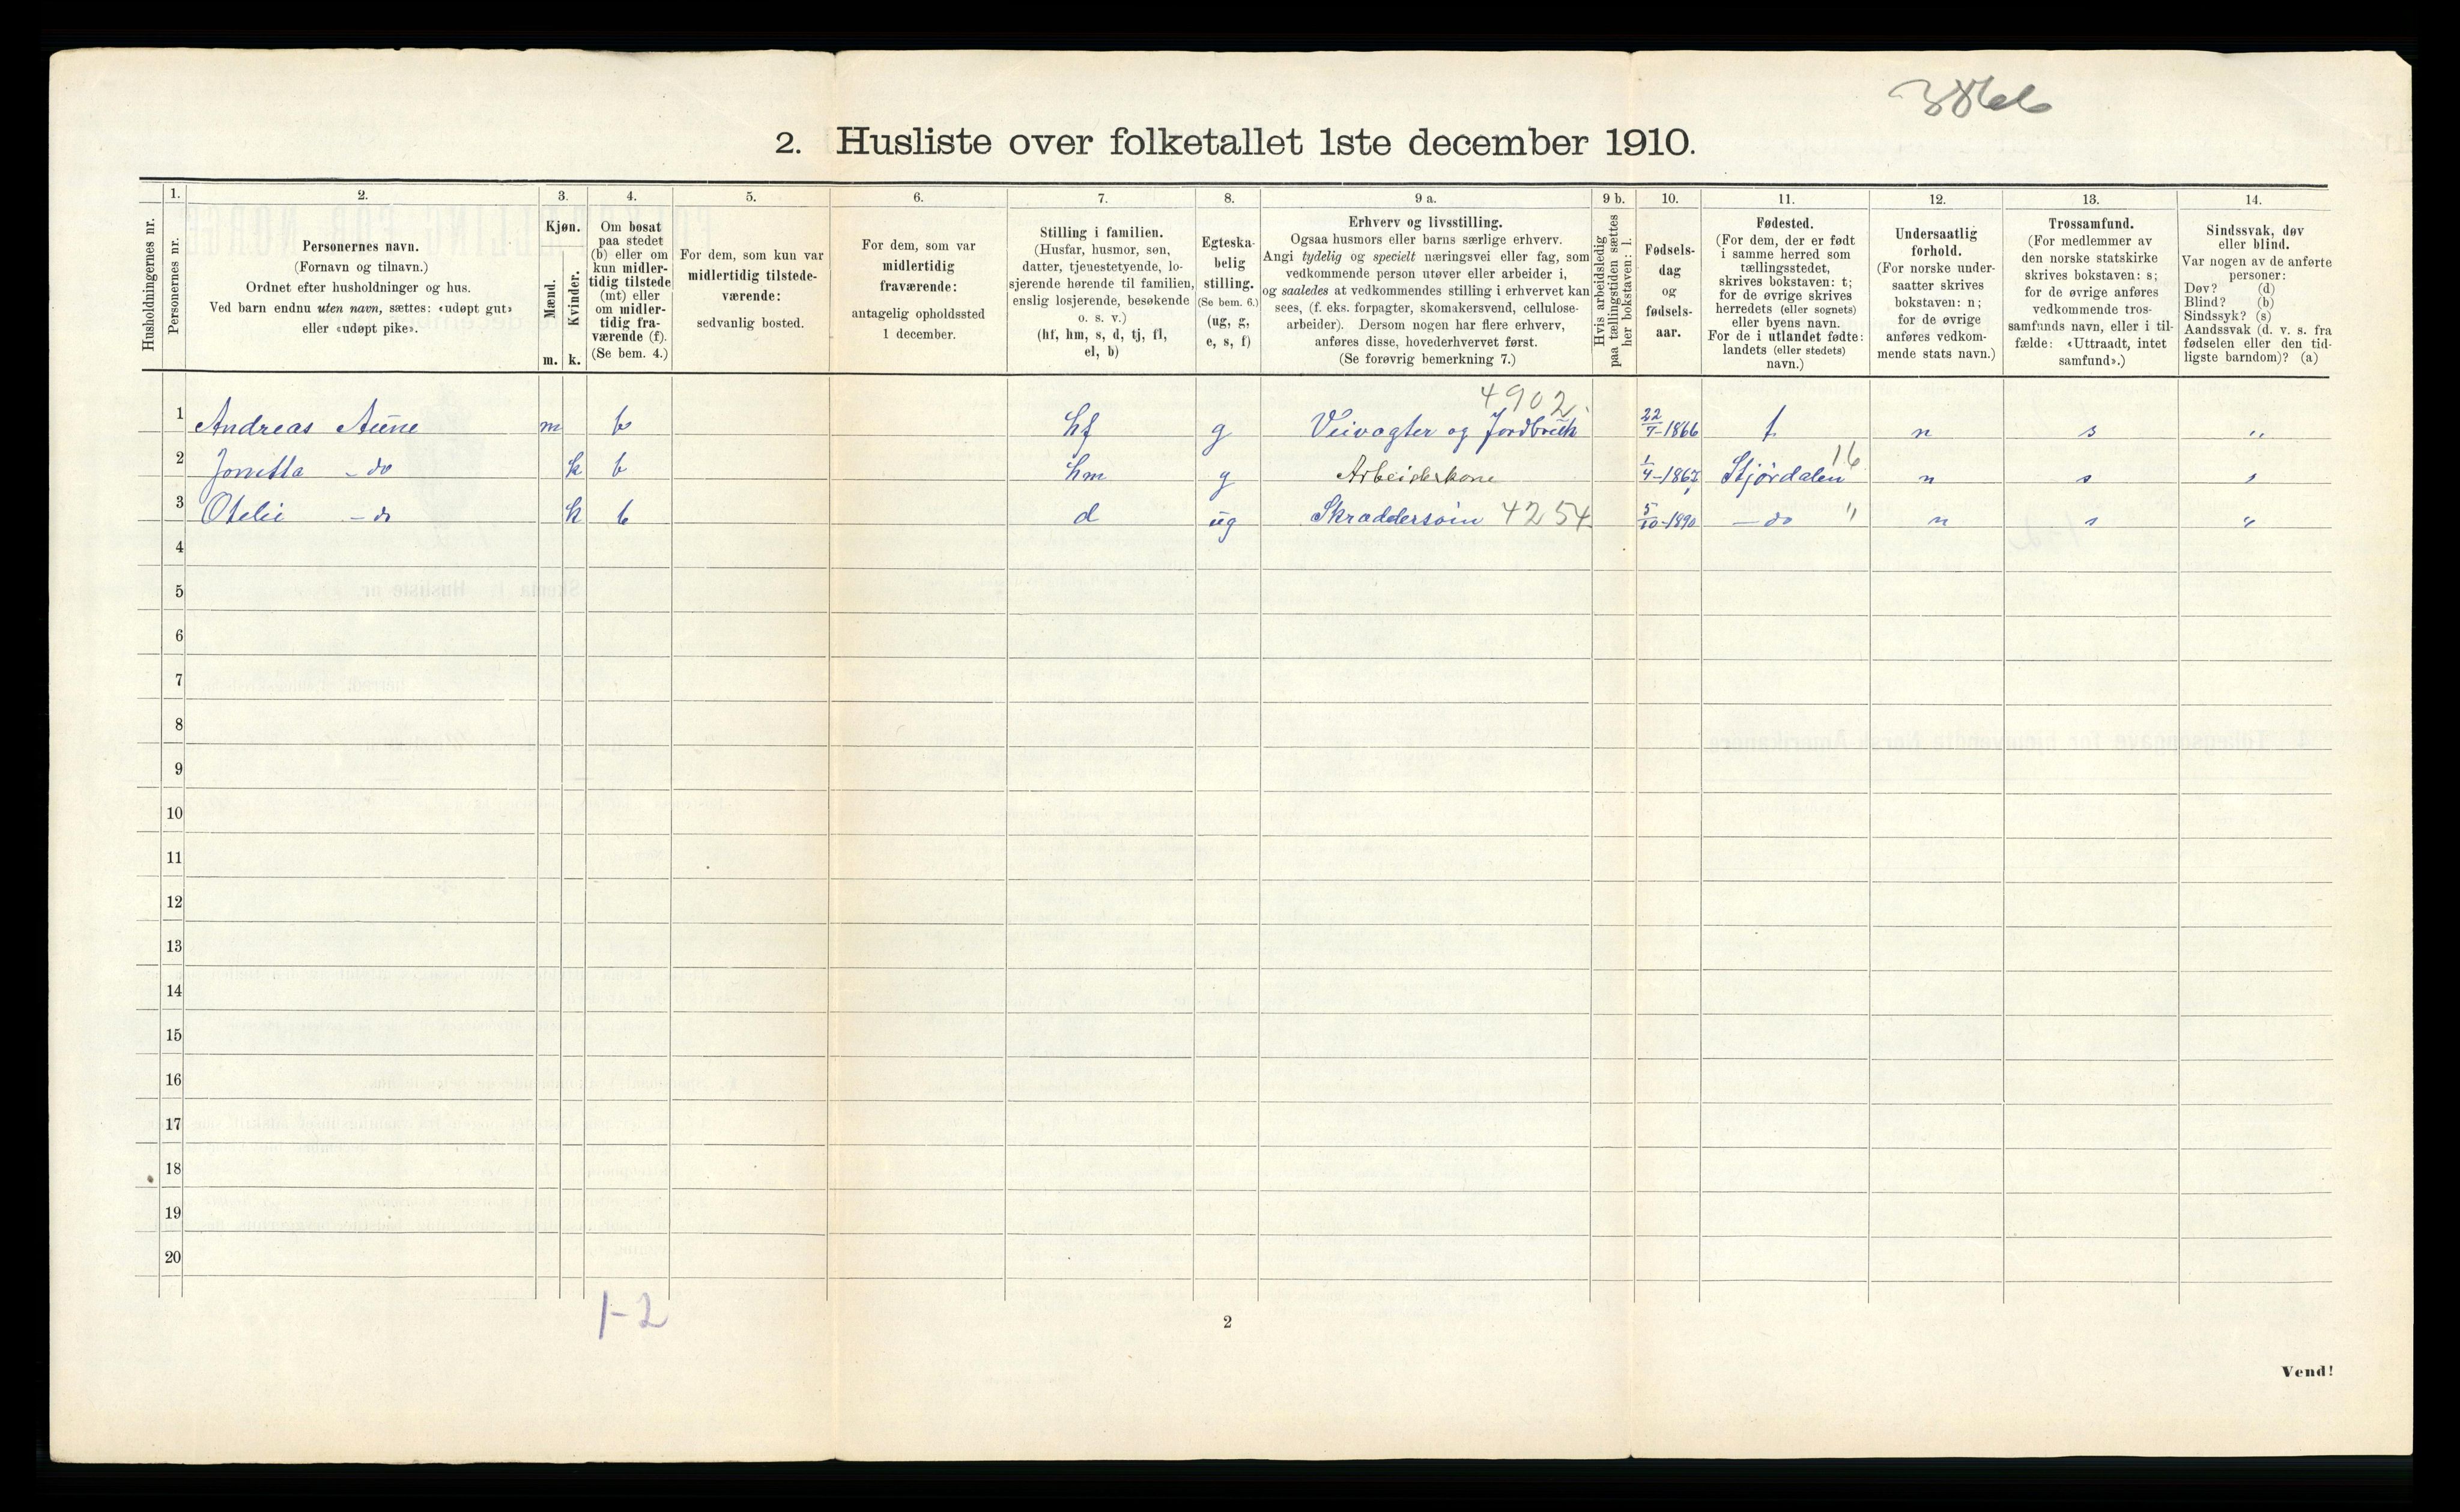 2. Husliste over folketallet 1ste december 1910.
Husholdningernes nr.
1.
Personernes nr.
2.
Personernes navn.
(Fornavn og tilnavn.)
Ordnet efter husholdninger og hus.
Ved barn endnu uten navn, sættes: «udøpt gut»
eller «udøpt pike».
3.
Kjøn.
Mænd.
m.
Kvinder.
k.
4.
Om bosat
paa stedet
(b) eller om
kun midler-
tidig tilstede
(mt) eller
om midler-
tidig fra-
værende (f).
(Se bem. 4.)
5.
For dem, som kun var
midlertidig tilstede-
værende:
sedvanlig bosted.
6.
For dem, som var
midlertidig
fraværende:
antagelig opholdssted
1 december.
7.
Stilling i familien.
(Husfar, husmor, søn,
datter, tjenestetyende, lo-
sjerende hørende til familien,
enslig losjerende, besøkende
o. s. v.)
(hf, hm, s, d, tj, fl,
el, b)
8.
Egteska-
belig
stilling.
(Se bem. 6.)
(ug, g,
e, s, f)
9 a.
Erhverv og livsstilling.
Ogsaa husmors eller barns særlige erhverv.
Angi tydelig og specielt næringsvei eller fag, som
vedkommende person utøver eller arbeider i,
og saaledes at vedkommendes stilling i erhvervet kan
sees, (f. eks. forpagter, skomakersvend, cellulose-
arbeider). Dersom nogen har flere erhverv,
anføres disse, hovederhvervet først.
(Se forøvrig bemerkning 7.)
9 b.
Hvis arbeidsledig
paa tællingstiden sættes
her bokstaven: l.
10.
Fødsels-
dag
og
fødsels-
aar.
11.
Fødested.
(For dem, der er født
i samme herred som
tællingsstedet,
skrives bokstaven: t;
for de øvrige skrives
herredets (eller sognets)
eller byens navn.
For de i utlandet fødte:
landets (eller stedets)
navn.)
12.
Undersaatlig
forhold.
(For norske under-
saatter skrives
bokstaven: n;
for de øvrige
anføres vedkom-
mende stats navn.)
13.
Trossamfund.
(For medlemmer av
den norske statskirke
skrives bokstaven: s;
for de øvrige anføres
vedkommende tros-
samfunds navn, eller i til-
fælde: «Uttraadt, intet
samfund».)
14.
Sindssvak, døv
eller blind.
Var nogen av de anførte
personer:
Døv? (d)
Blind? (b)
Sindssyk? (s)
Aandssvak (d. v. s. fra
fødselen eller den tid-
ligste barndom)? (a)
4902
1 Andreas Aune m b hf g Veivogter og Jordbruk 22/7-1866 t n s "
2 Jonetta - do k b hm g Arbeiderkone 1/4-1862 Stjørdalen 16 n s "
3 Otelie - do k b d ug Skræddersøm 4254 5/10-1890 - do " n s "
4
5
6
7
8
9
10
11
12
13
14
15
16
17
18
19
20
1-2
2
Vend!